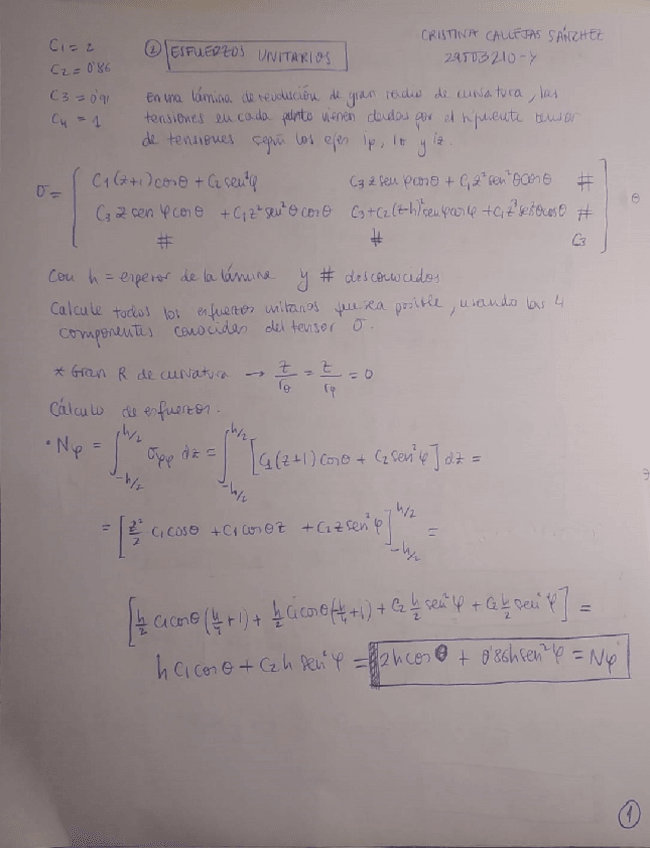 CRISTINA CALLEJAS SÁNCHEZ
29503210-Y
C1 = 2
C2 = 0'86
C3 = 0'91
C4 = 1
② ESFUERZOS UNITARIOS
en una lámina de revolución de gran radio de curvatura, las
tensiones en cada punto vienen dadas por el siguiente tensor
de tensiones según los ejes 1φ, 1θ y iz.
σ = [ C1(z+1)cosθ + C2 sen²φ    C3 z sen φ cosθ + C1 z² sen²θ cosθ    #
C3 z sen φ cosθ + C1 z² sen²θ cosθ    C3 + C2(z-h)² sen φ cos φ + C1 z³ sen²θ cosθ    #
#    #    C3 ]
θ
Con h = espesor de la lámina y # desconocidos
Calcule todos los esfuerzos unitarios que sea posible, usando las 4
componentes conocidas del tensor σ.
* Gran R de curvatura → z/rθ = z/rφ = 0
Cálculo de esfuerzos.
• Nφ = ∫_{-h/2}^{h/2} σφφ dz = ∫_{-h/2}^{h/2} [C1(z+1) cosθ + C2 sen²φ] dz =
= [z²/2 C1 cosθ + C1 cosθ z + C2 z sen²φ]_{-h/2}^{h/2} =
[h/2 C1 cosθ (h/4 + 1) + h/2 C1 cosθ (-h/4 + 1) + C2 h/2 sen²φ + C2 h/2 sen²φ] =
h C1 cosθ + C2 h sen²φ = 2h cosθ + 0'86h sen²φ = Nφ
1